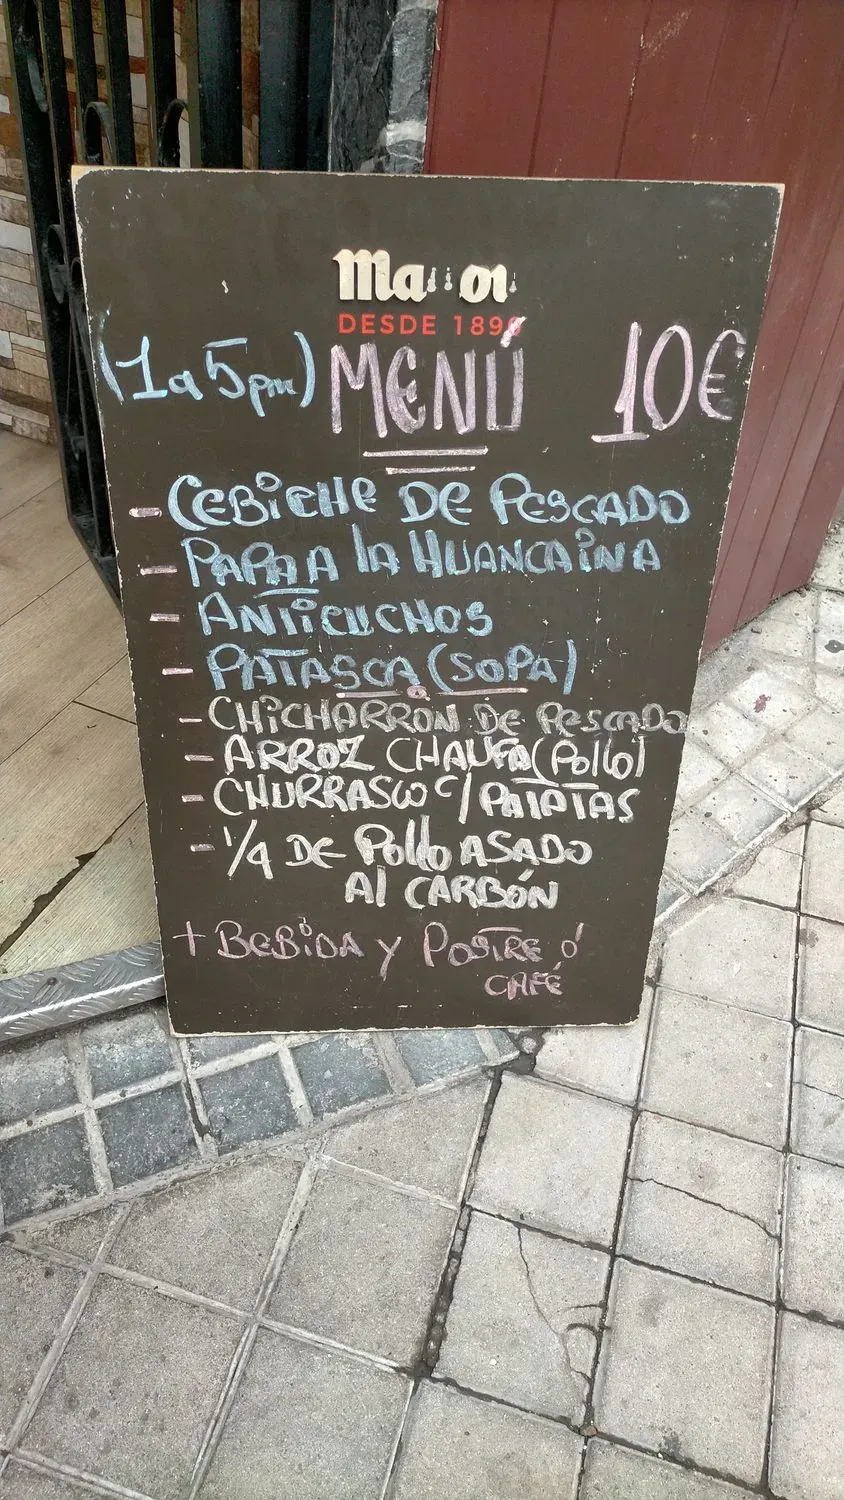 DESDE 1890
(1 a 5pm) MENÚ 10€
- CEBICHE DE PESCADO
- PAPA A la HUANCAINA
- ANTICUCHOS
- PATASCA (SOPA)
- CHICHARRON DE PESCADO
- ARROZ CHAUFA (Pollo)
- CHURRASCO C/ PATATAS
- 1/4 DE Pollo ASADO
Al CARBÓN
+ BEBIDA Y POSTRE ó
CAFÉ